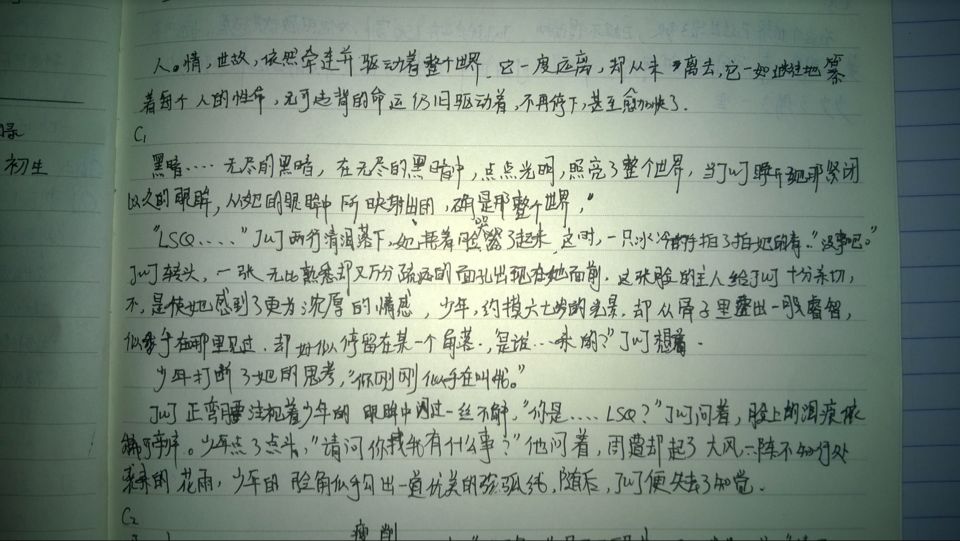 人。情,世故,依然牵连并驱动着整个世界,它一度远离,却从未离去,它一如既往地
着每个人的性命,无可违背的命运仍旧驱动着,不再停下,甚至愈加快了.
C1
黑暗.... 无尽的黑暗,在无尽的黑暗中,点点光明,照亮了整个世界,当JWJ睁开她那紧闭
以久的眼眸,从她的眼眸中所映射出的,确是那整个世界,"
"LSQ....."JWJ两行清泪落下,她捂着脸哭了起来,这时,一只冰冷的手拍了拍她的肩."没事吧。"
JWJ转头,一张无比熟悉却又万分疏远的面孔出现在她面前.这张脸的主人给JWJ十分亲切,
不,是使她感到了更为浓厚的情感,少年,约摸六七岁的光景,却从骨子里透出一股睿智,
似乎在哪里见过.却好似停留在某一个角落,是谁...来的?"JWJ想着.
少年打断了她的思考,"你刚刚似乎在叫我。"
JWJ正注视着少年的眼眸中闪过一丝不解,"你是.....LSQ?"JWJ问着,脸上的泪痕依
。少年点了点头,"请问你找我有什么事?"他问着,周遭却起了大风,一阵不知何处
来的花雨,少年的脸角似乎勾出一道优美的弧线,随后,JWJ便失去了知觉.
C2
瘦削
录
初生